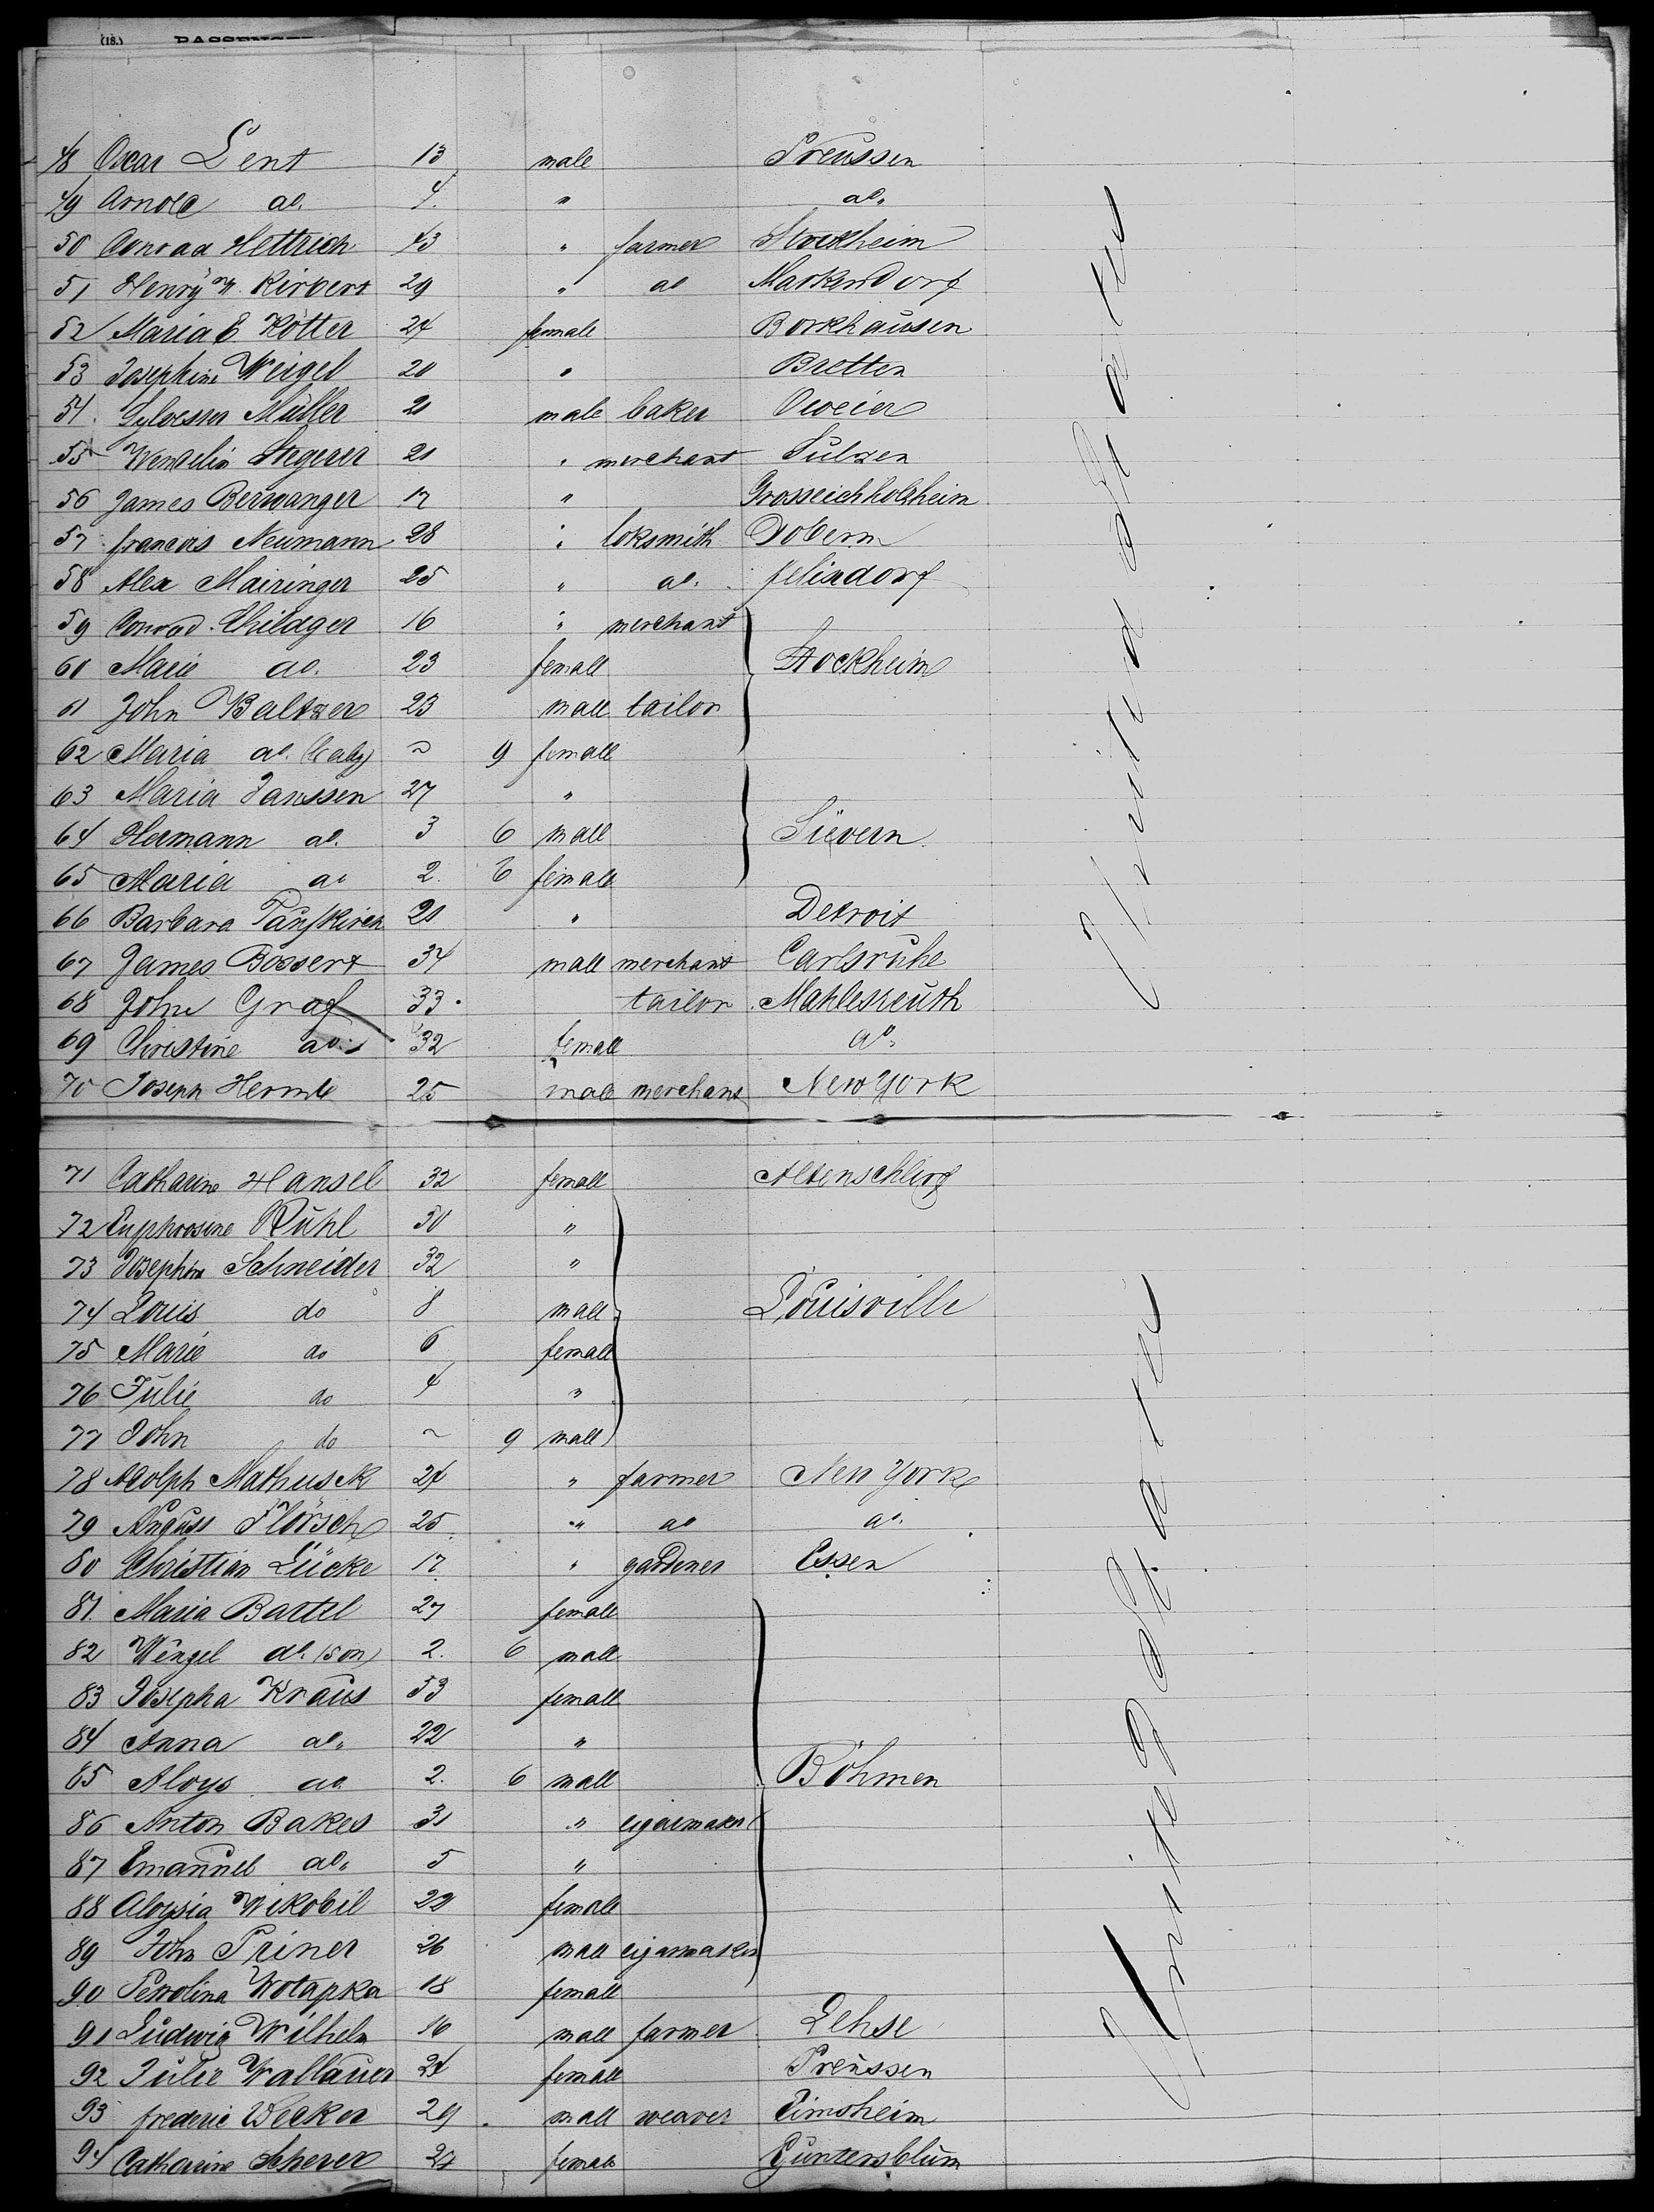 (18.) PASSENGER
48 Oscar Lent 13 male Preussen
49 Arnold do. 4. " do.
50 Conrad Hettrich 43 " farmer Stockheim
51 Henry W. Kirbert 29 " do Markendorf
52 Maria E Kötter 24 female Borkhausen
53 Josephine Weigel 20 " Bretten
54. Sylvester Müller 21 male baker Oweier
55 Wendelin Stegerer 21 " merchant Sulzen
56 James Berwanger 17 " Grosseichholzheim
57 francois Neumann 28 " loksmith Dobern
58 Alex Mairinger 25 " do. felixdorf
59 Conrad Schildger 16 " merchant
60 Marie do. 23 female Stockheim
61 John Baltzer 23 male tailor
62 Maria do. (baby) ~ 9 female
63 Maria Janssen 27 "
64 Hermann do. 3 6 male Sievern
65 Maria do 2. 6 female
66 Barbara Taufkirch 21 " Detroit
67 James Bossert 34 male merchant Carlsruhe
68 John Graf 33. tailor Mahlesreuth
69 Christine do. 32 female do.
70 Joseph Hermle 25 male merchant New York
71 Catharine Hansel 32 female Altenschlirf
72 Euphrosine Rühl 50 "
73 Josephine Schneider 32 "
74 Louis do 8 male Louisville
75 Marie do 6 female
76 Julie do 4 "
77 John do ~ 9 male
78 Adolph Mathusek 24 " farmer New York
79 August Flörsch 25 " do do.
80 Christian Lücke 17 " gardener Essen
81 Maria Bartel 27 female
82 Wenzel do. (son) 2. 6 male
83 Josepha Kraus 53 female
84 Anna do. 22 "
85 Aloys do. 2. 6 male Böhmen
86 Anton Bakes 31 " cigarmaker
87 Emanuel do. 5 "
88 Aloysia Wikobil 22 female
89 John Priner 26 male cigarmaker
90 Perrolina Wotapka 18 female
91 Ludwig Wilhelm 16 male farmer Lehse
92 Julie Wallauer 24 female Preussen
93 frederic Wecker 29 male weaver Eimsheim
94 Catharine Scherer 24 female Guntersblum
United States
United States